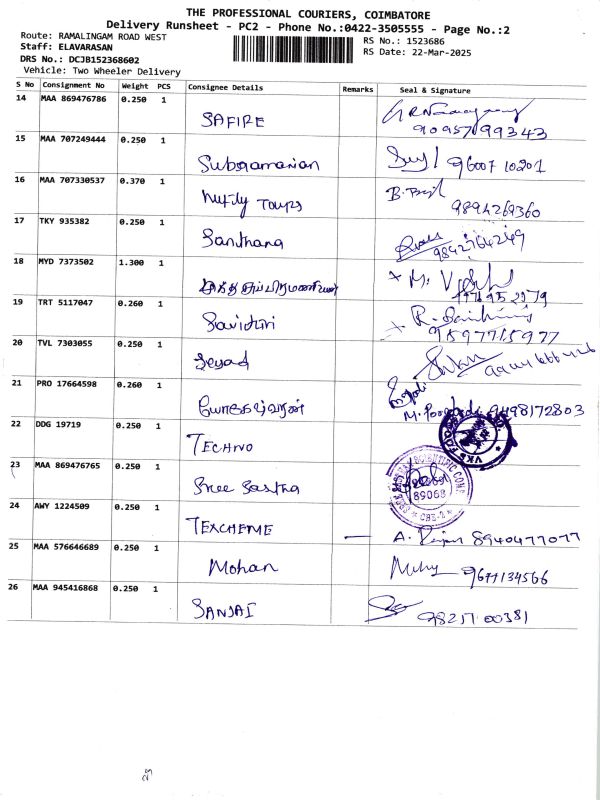 THE PROFESSIONAL COURIERS, COIMBATORE
Delivery Runsheet - PC2 - Phone No.:0422-3505555 - Page No.:2
Route: RAMALINGAM ROAD WEST
RS No.: 1523686
Staff: ELAVARASAN
RS Date: 22-Mar-2025
DRS No.: DCJB152368602
Vehicle: Two Wheeler Delivery
S No Consignment No Weight PCS Consignee Details Remarks Seal & Signature
14 MAA 869476786 0.250 1 SAFIRE
9095799343
15 MAA 707249444 0.250 1 Subramanian 9600710201
16 MAA 707330537 0.370 1 Tours 9894269360
17 TKY 935382 0.250 1 Santhana 9842764249
18 MYD 7373502 1.300 1
19 TRT 5117047 0.260 1 Savithiri R.
9597715977
20 TVL 7303055 0.250 1
21 PRO 17664598 0.260 1 யோகேஷ்வரன் 9498172803
22 DDG 19719 0.250 1 TECHNO
23 MAA 869476765 0.250 1 Sree Sastha
89068
CBE-2
24 AWY 1224509 0.250 1 TEXCHEME — A. 8940477077
25 MAA 576646689 0.250 1 Mohan 9677134566
26 MAA 945416868 0.250 1 SANJAI 98257 00381